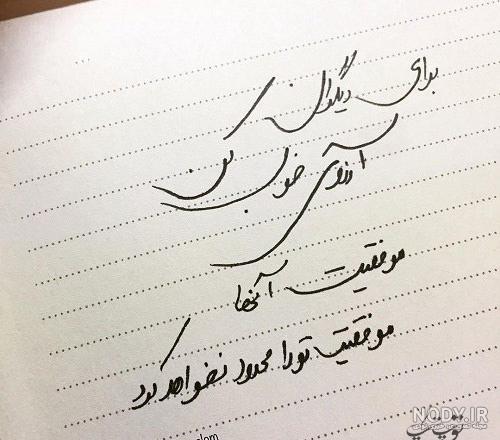 برای دیگران
آرزوی خوب کن
موفقیت آنها
موفقیت تو را محدود نخواهد کرد
NODY.IR